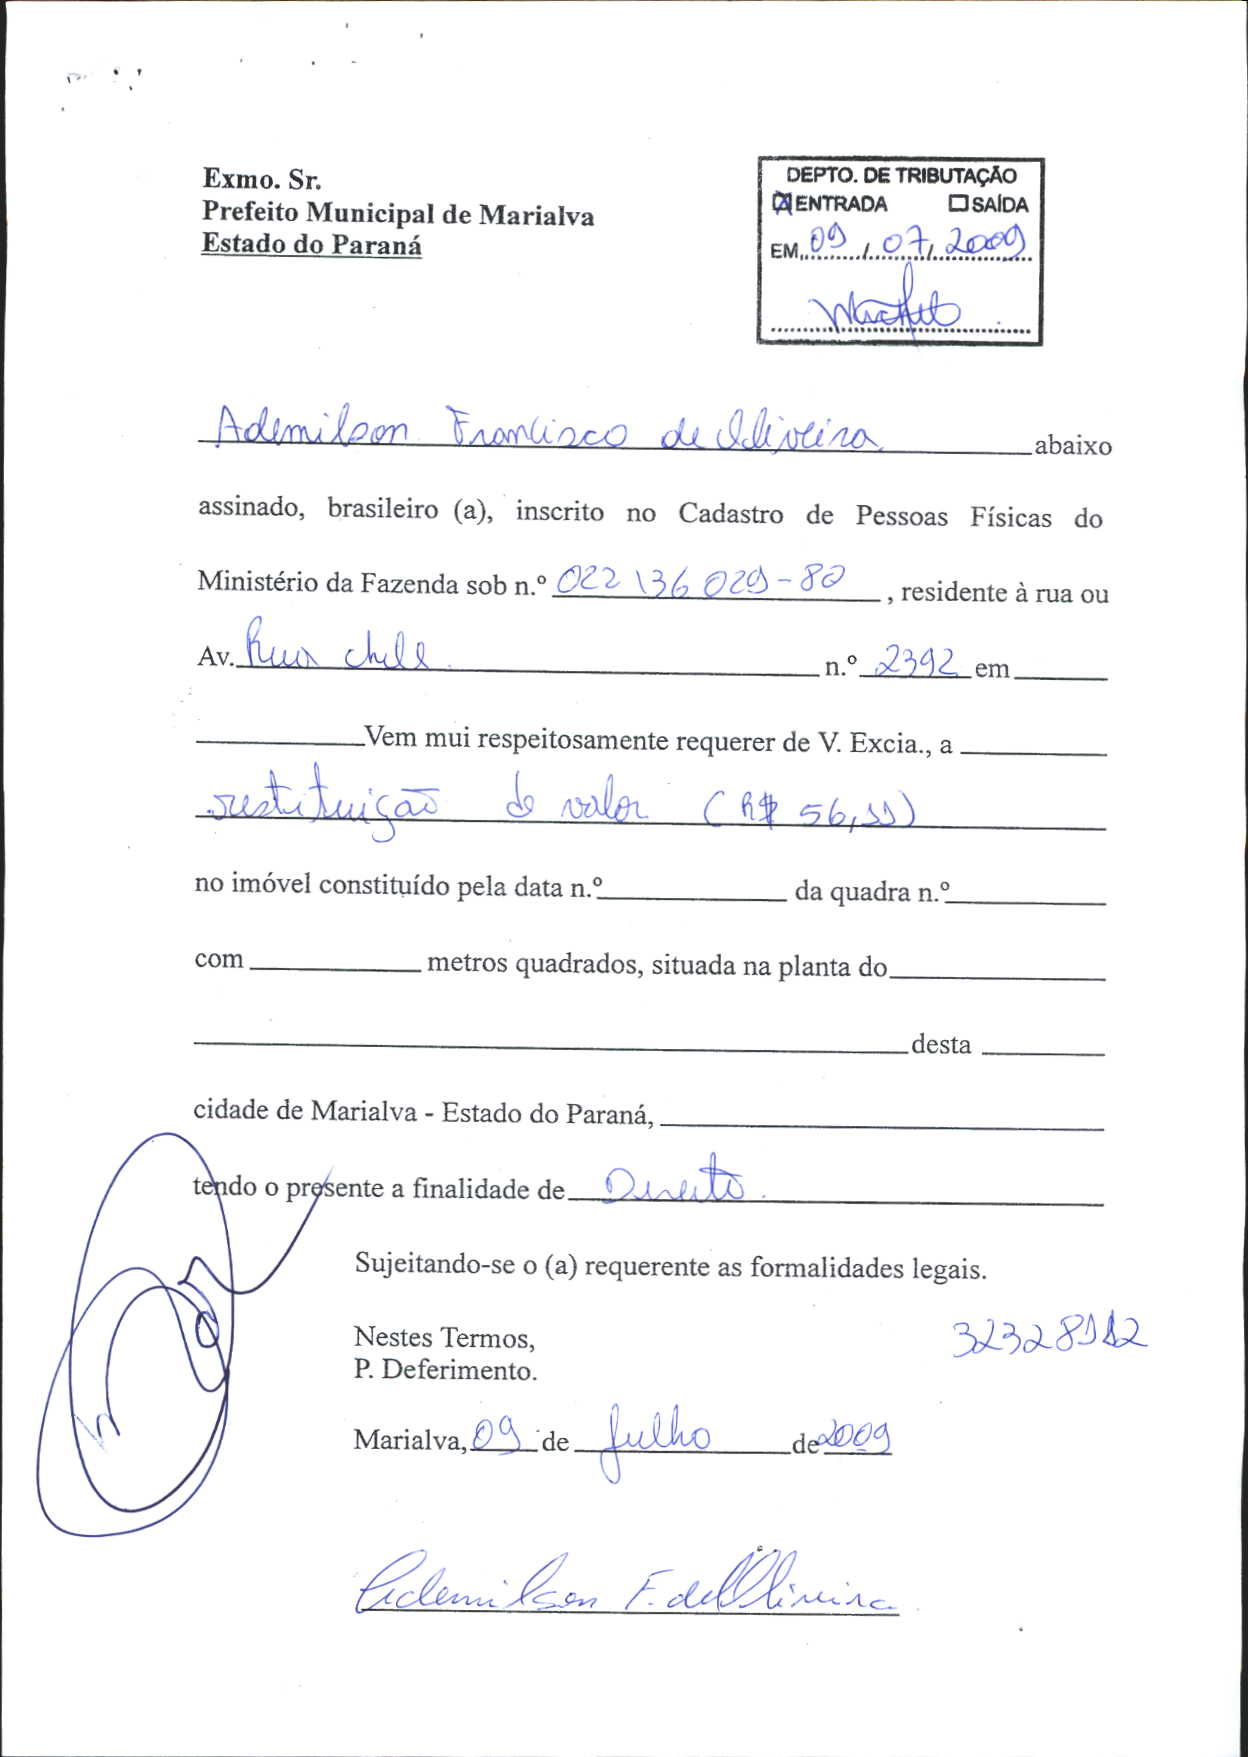 Exmo. Sr.
Prefeito Municipal de Marialva
Estado do Paraná
DEPTO. DE TRIBUTAÇÃO
☒ ENTRADA ☐ SAÍDA
EM 09 / 07 / 2009
Ademilson Francisco de Oliveira abaixo
assinado, brasileiro (a), inscrito no Cadastro de Pessoas Físicas do
Ministério da Fazenda sob n.º 022 136 029-80, residente à rua ou
Av. Rua chile n.º 2392 em
Vem mui respeitosamente requerer de V. Excia., a
restituição do valor (R$ 56,11)
no imóvel constituído pela data n.º da quadra n.º
com metros quadrados, situada na planta do
desta
cidade de Marialva - Estado do Paraná,
tendo o presente a finalidade de Direito.
Sujeitando-se o (a) requerente as formalidades legais.
Nestes Termos,
P. Deferimento.
Marialva, 09 de julho de 2009
Ademilson F. de Oliveira